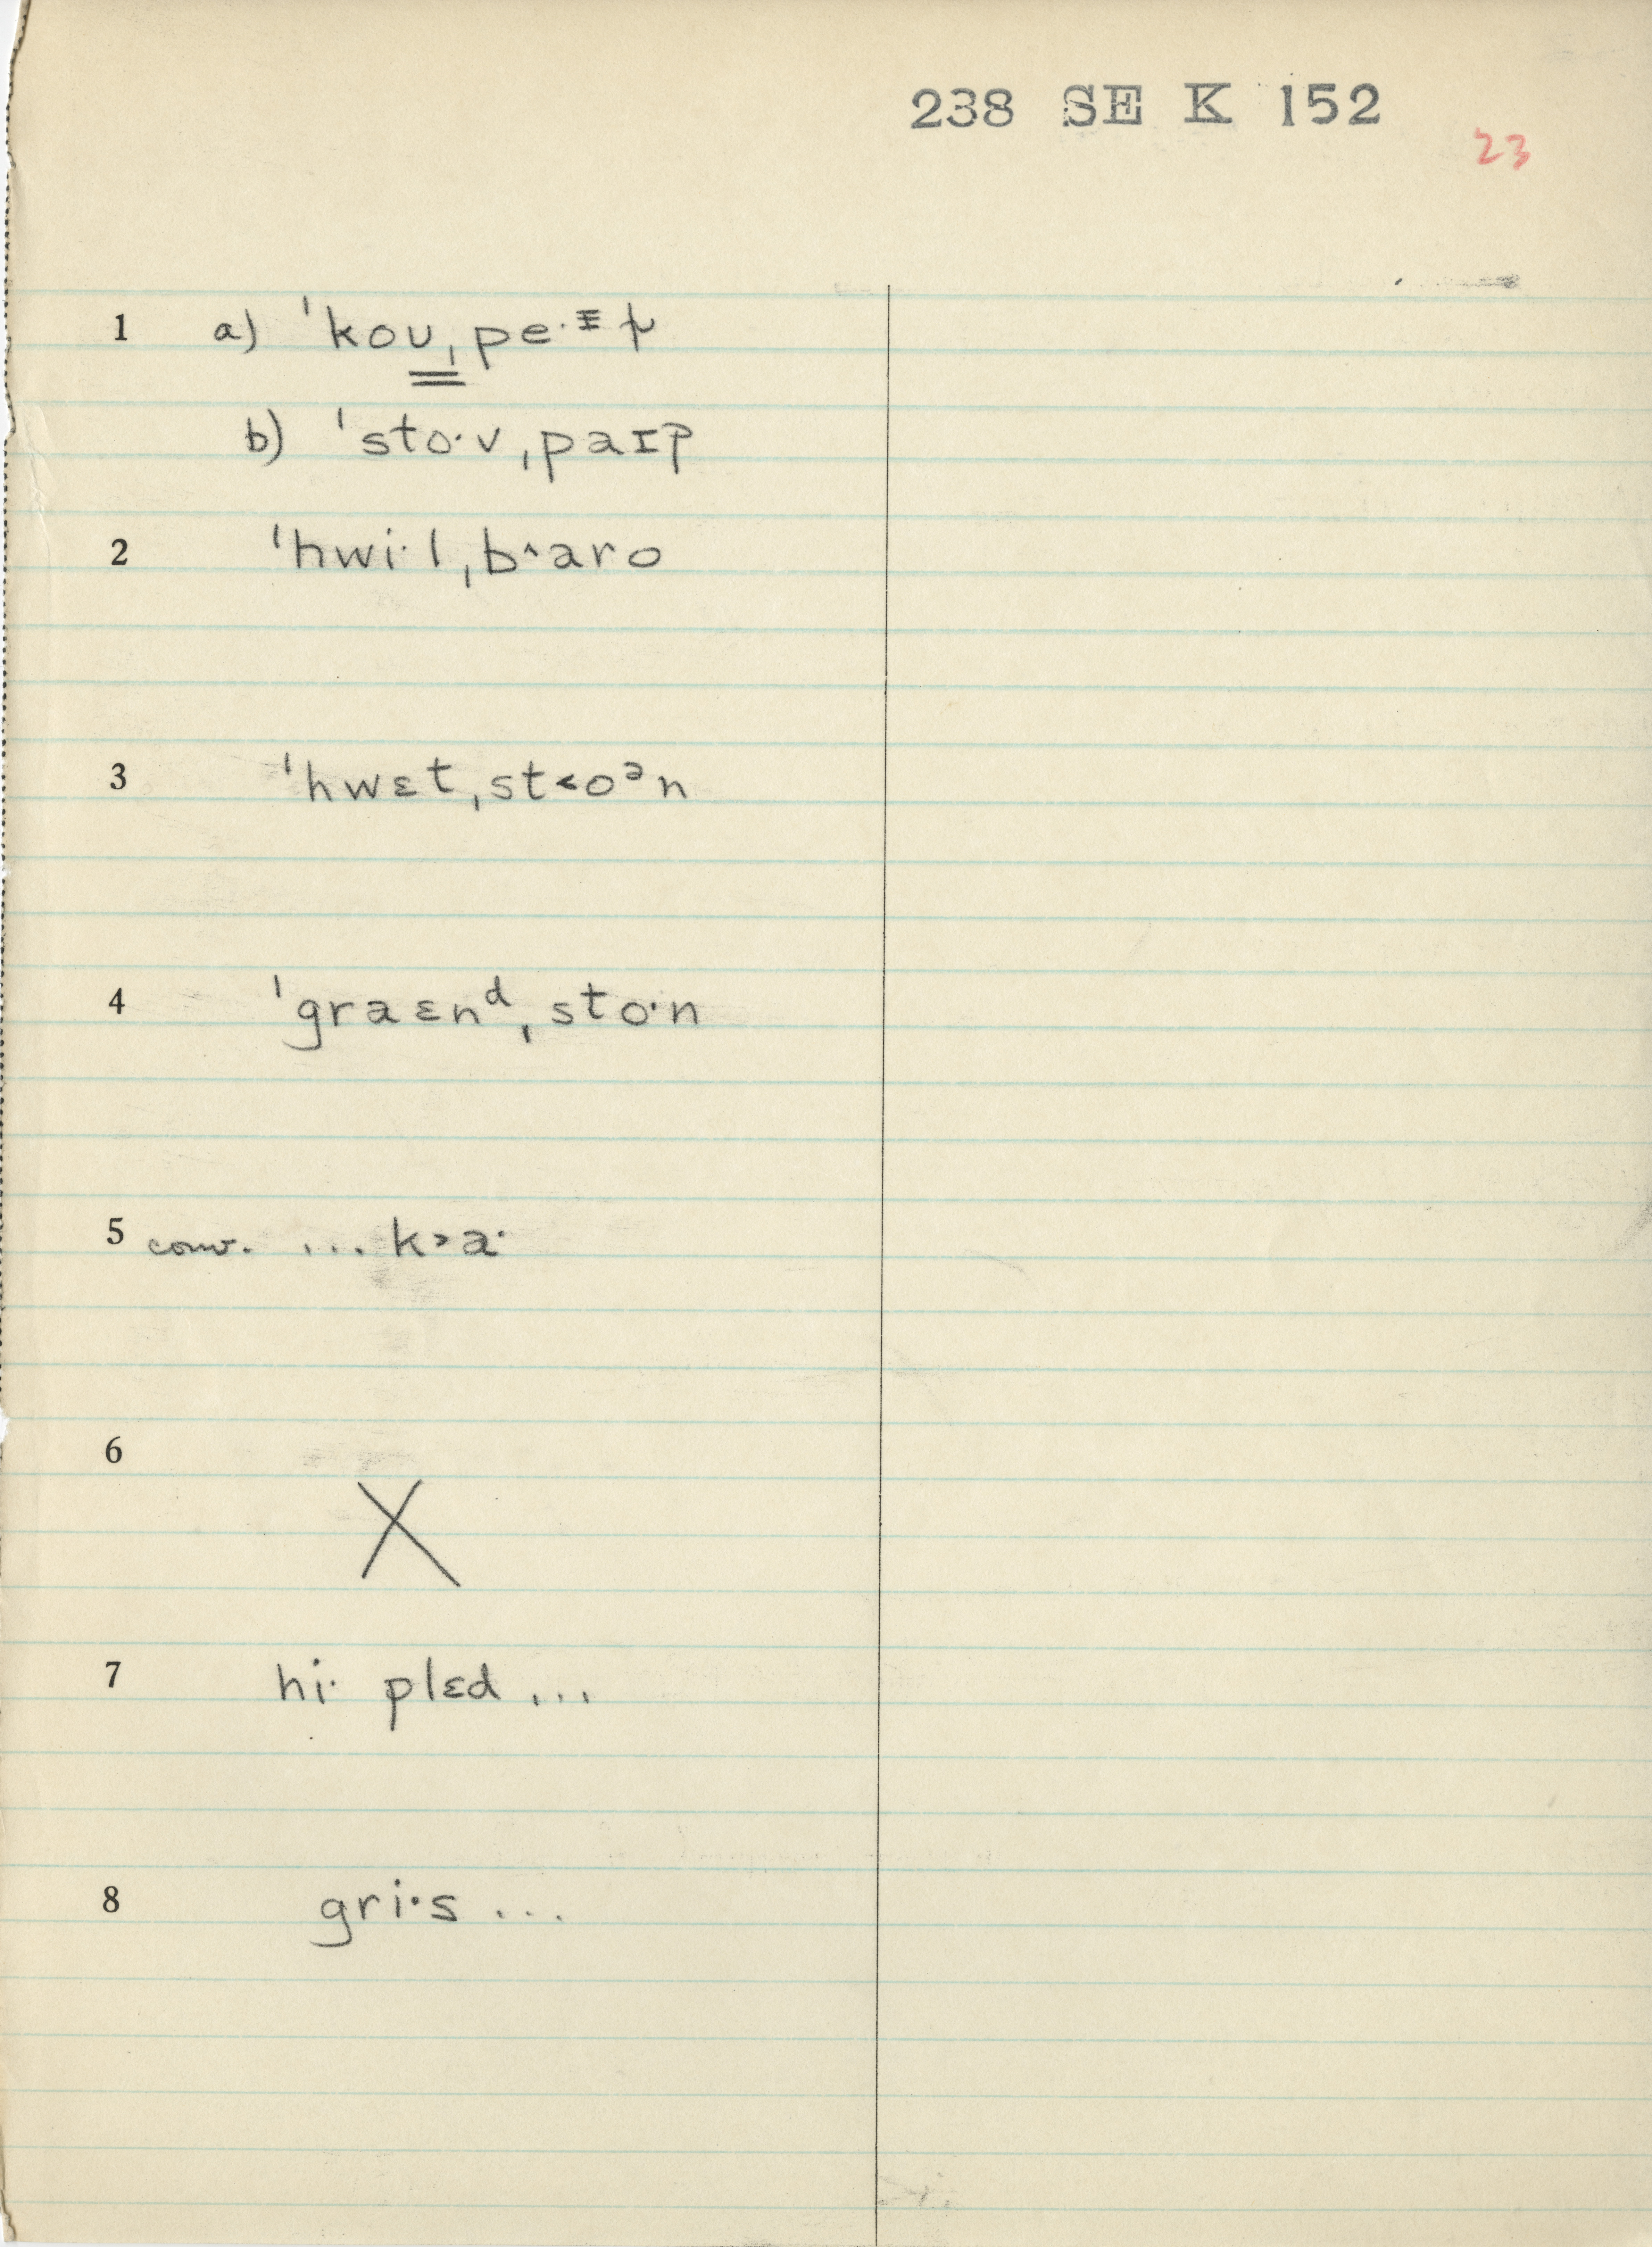 238 SE K 152
23
1 a) ˈkoʊˌpe·
b) ˈsto·vˌpaɪp
2 ˈhwi·lˌb^aro
3 ˈhwɛtˌst<oᵊn
4 ˈgraɛnᵈˌsto·n
5 conv. ... k>a·
6 X
7 hi· plɛd ...
8 gri·s ...